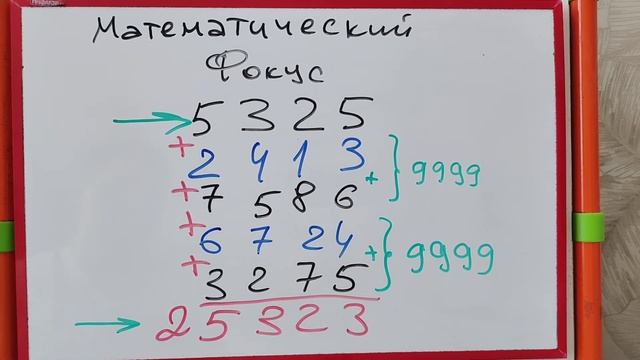 Математический
Фокус
5325
+ 2413
+ 7586
+ } 9999
+ 6724
+ 3275
+ } 9999
25323